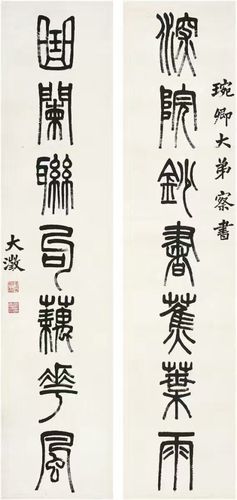 琬卿大弟察書
深院鈔書蕉葉雨
曲闌聯句藕花風
大澂